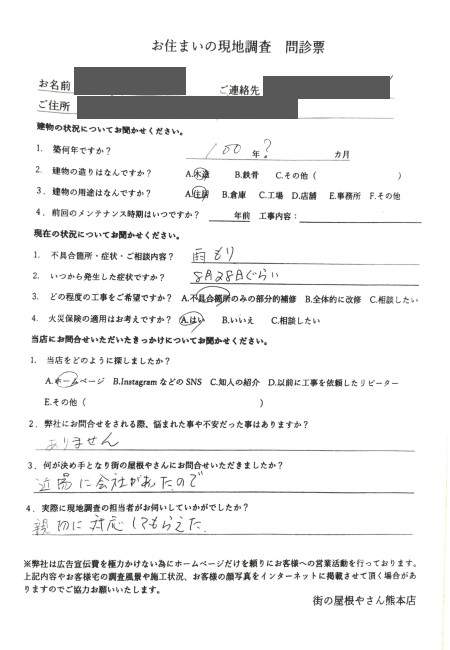 お住まいの現地調査 問診票
お名前
ご連絡先
ご住所
建物の状況についてお聞かせください。
1. 築何年ですか？ 100年？ カ月
2. 建物の造りはなんですか？ A.木造 B.鉄骨 C.その他（ ）
3. 建物の用途はなんですか？ A.住居 B.倉庫 C.工場 D.店舗 E.事務所 F.その他
4. 前回のメンテナンス時期はいつですか？ 年前 工事内容：
現在の状況についてお聞かせください。
1. 不具合箇所・症状・ご相談内容？ 雨もり
2. いつから発生した症状ですか？ 8月28日ぐらい
3. どの程度の工事をご希望ですか？ A.不具合箇所のみの部分的補修 B.全体的に改修 C.相談したい
4. 火災保険の適用はお考えですか？ A.はい B.いいえ C.相談したい
当店にお問合せいただいたきっかけについてお聞かせください。
1. 当店をどのように探しましたか？
A.ホームページ B.InstagramなどのSNS C.知人の紹介 D.以前に工事を依頼したリピーター
E.その他（ ）
2. 弊社にお問合せをされる際、悩まれた事や不安だった事はありますか？
ありません
3. 何が決め手となり街の屋根やさんにお問合せいただきましたか？
近場に会社があたので
4. 実際に現地調査の担当者がお伺いしていかがでしたか？
親切に対応してもらえた
※弊社は広告宣伝費を極力かけない為にホームページだけを頼りにお客様への営業活動を行っております。
上記内容やお客様宅の調査風景や施工状況、お客様の顔写真をインターネットに掲載させて頂く場合があ
りますのでご協力お願いいたします。
街の屋根やさん熊本店